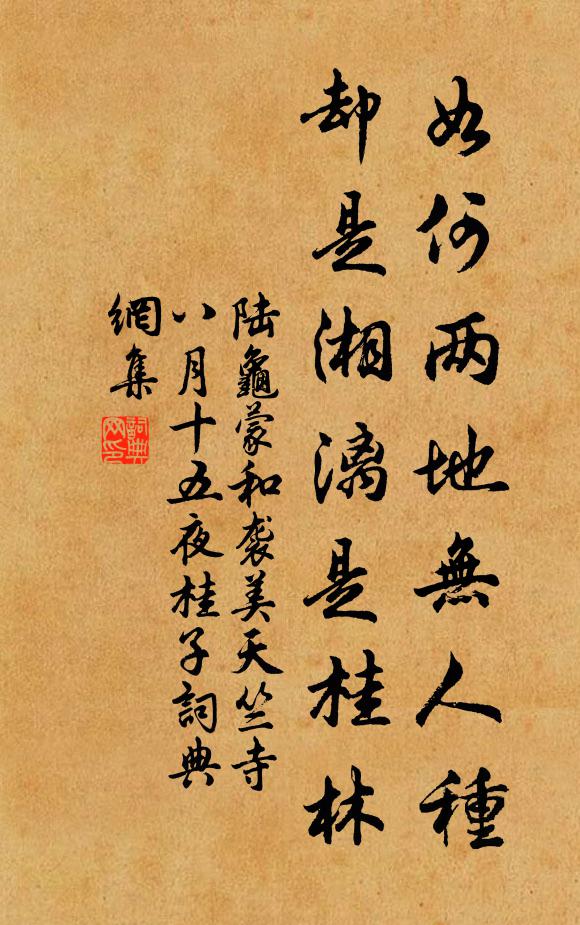 如何两地無人種
却是湘漓是桂林
陆龜蒙和袭美天竺寺
八月十五夜桂子詞典
網集
詞典
网印